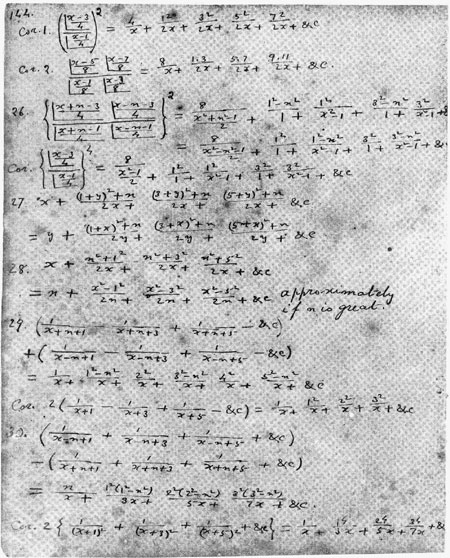 144.
Cor. 1. (|x-3/4 / |x-1/4)² = 4/x + 1²/2x + 3²/2x + 5²/2x + 7²/2x + &c
Cor. 2. |x-5/8 |x-7/8 / |x-1/8 |x-3/8 = 8/x + 1.3/2x + 5.7/2x + 9.11/2x + &c.
26. {|x+n-3/4 |x-n-3/4 / |x+n-1/4 |x-n-1/4}² = 8/(x²+n²-1)/2 + 1²-n²/1 + 1²/x²-1 + 3²-n²/1 + 3²/x²-1 + &c
= 8/(x²-n²-1)/2 + 1²/1 + 1²-n²/x²-1 + 3²/1 + 3²-n²/x²-1 + &c
Cor. {|x-3/4 / |x-1/4}⁴ = 8/(x²-1)/2 + 1²/1 + 1²/x²-1 + 3²/1 + 3²/x²-1 + &c
27. x + (1+y)²+n/2x + (3+y)²+n/2x + (5+y)²+n/2x + &c
= y + (1+x)²+n/2y + (3+x)²+n/2y + (5+x)²+n/2y + &c
28. x + n²+1²/2x + n²+3²/2x + n²+5²/2x + &c
= n + x²-1²/2n + x²-3²/2n + x²-5²/2n + &c approximately
if n is great.
29. (1/x+n+1 - 1/x+n+3 + 1/x+n+5 - &c)
+ (1/x-n+1 - 1/x-n+3 + 1/x-n+5 - &c)
= 1/x + 1²-n²/x + 2²/x + 3²-n²/x + 4²/x + 5²-n²/x + &c
Cor. 2(1/x+1 - 1/x+3 + 1/x+5 - &c) = 1/x + 1²/x + 2²/x + 3²/x + &c
30. (1/x-n+1 + 1/x-n+3 + 1/x-n+5 + &c)
- (1/x+n+1 + 1/x+n+3 + 1/x+n+5 + &c)
= n/x + 1²(1²-n²)/3x + 2²(2²-n²)/5x + 3²(3²-n²)/7x + &c.
Cor. 2{1/(x+1)² + 1/(x+3)² + 1/(x+5)² + &c} = 1/x + 1⁴/3x + 2⁴/5x + 3⁴/7x + &c